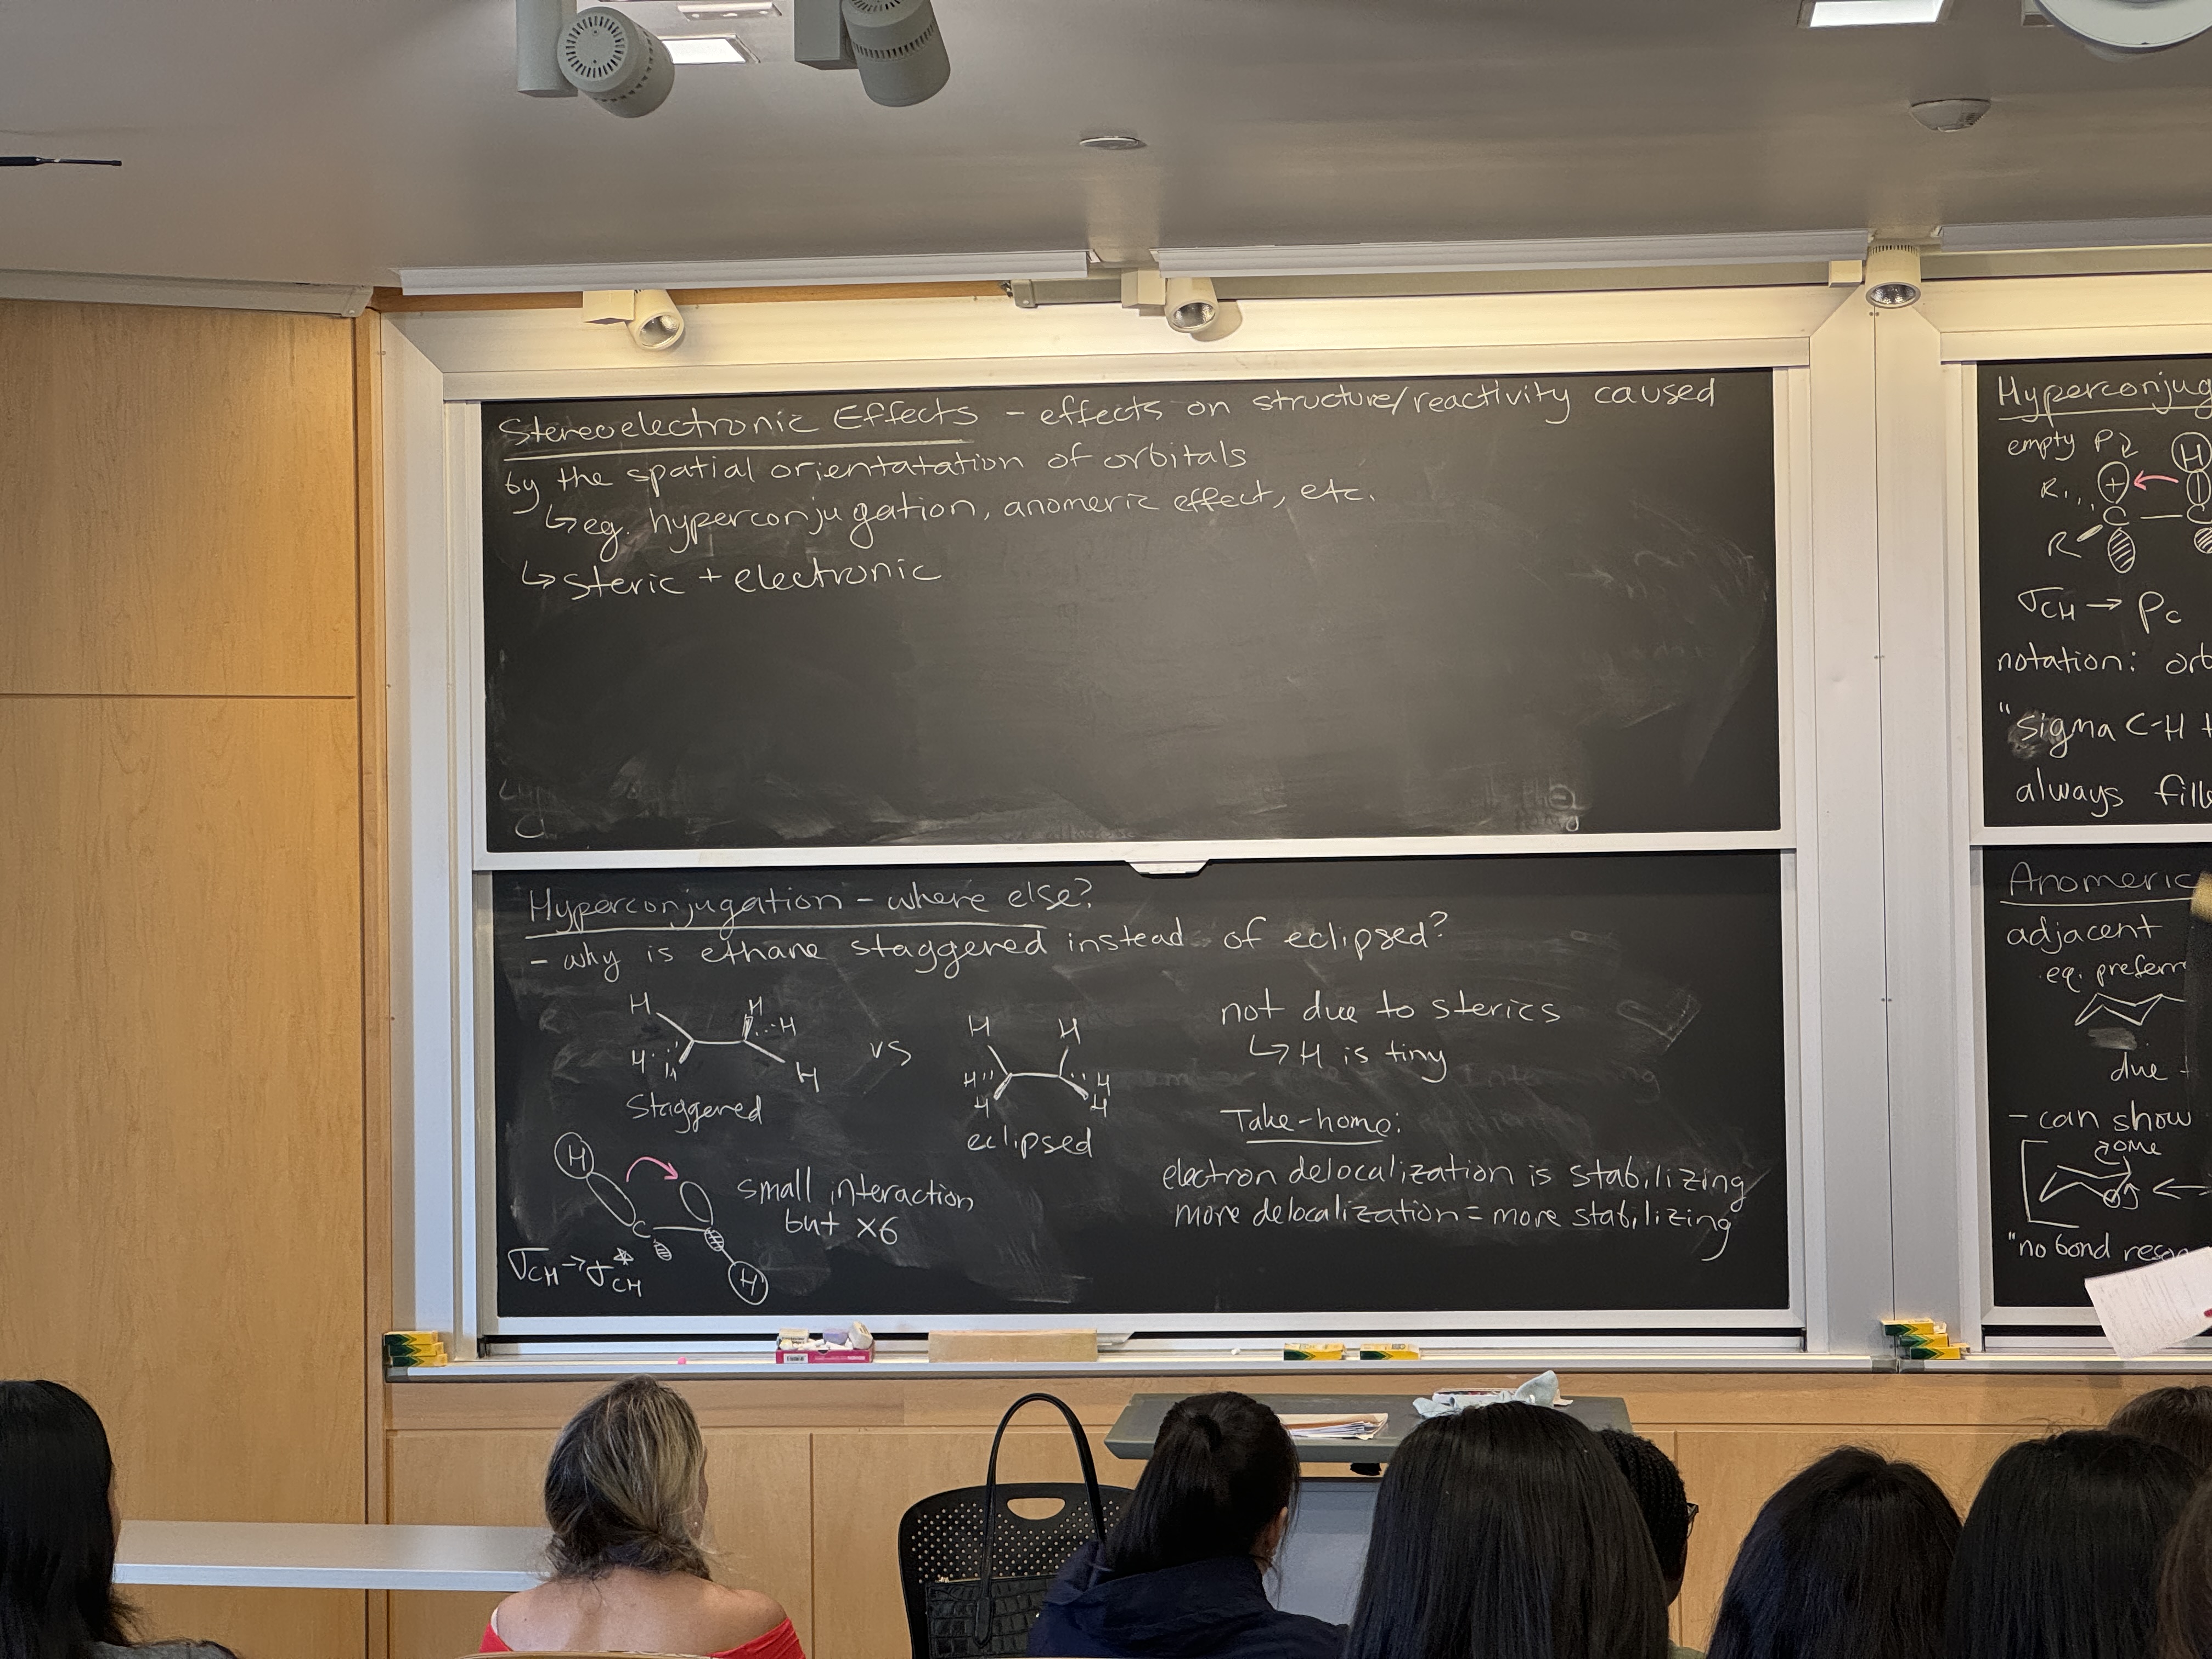 Stereoelectronic Effects - effects on structure/reactivity caused
by the spatial orientatation of orbitals
↳ eg. hyperconjugation, anomeric effect, etc.
↳ steric + electronic
Hyperconjugation - where else?
- why is ethane staggered instead of eclipsed?
H H H H H
staggered
vs
H H H H H H
eclipsed
not due to sterics
↳ H is tiny
Take-home:
electron delocalization is stabilizing
more delocalization = more stabilizing
H C H
small interaction,
but x6
σCH → σ*CH
Hyperconjug
empty P
H
R + 
C C
R
σCH → Pc
notation: orb
"sigma C-H
always fill
Anomeric
adjacent
eg. preferr
due
- can show
OMe
"no bond reso